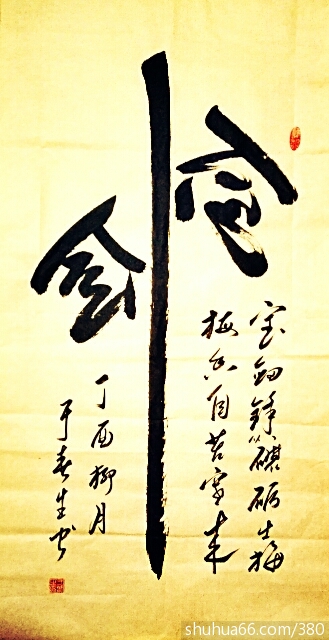 宝剑锋从磨砺出
梅香自苦寒来
丁酉柳月
于春生书
shuhua66.com/380